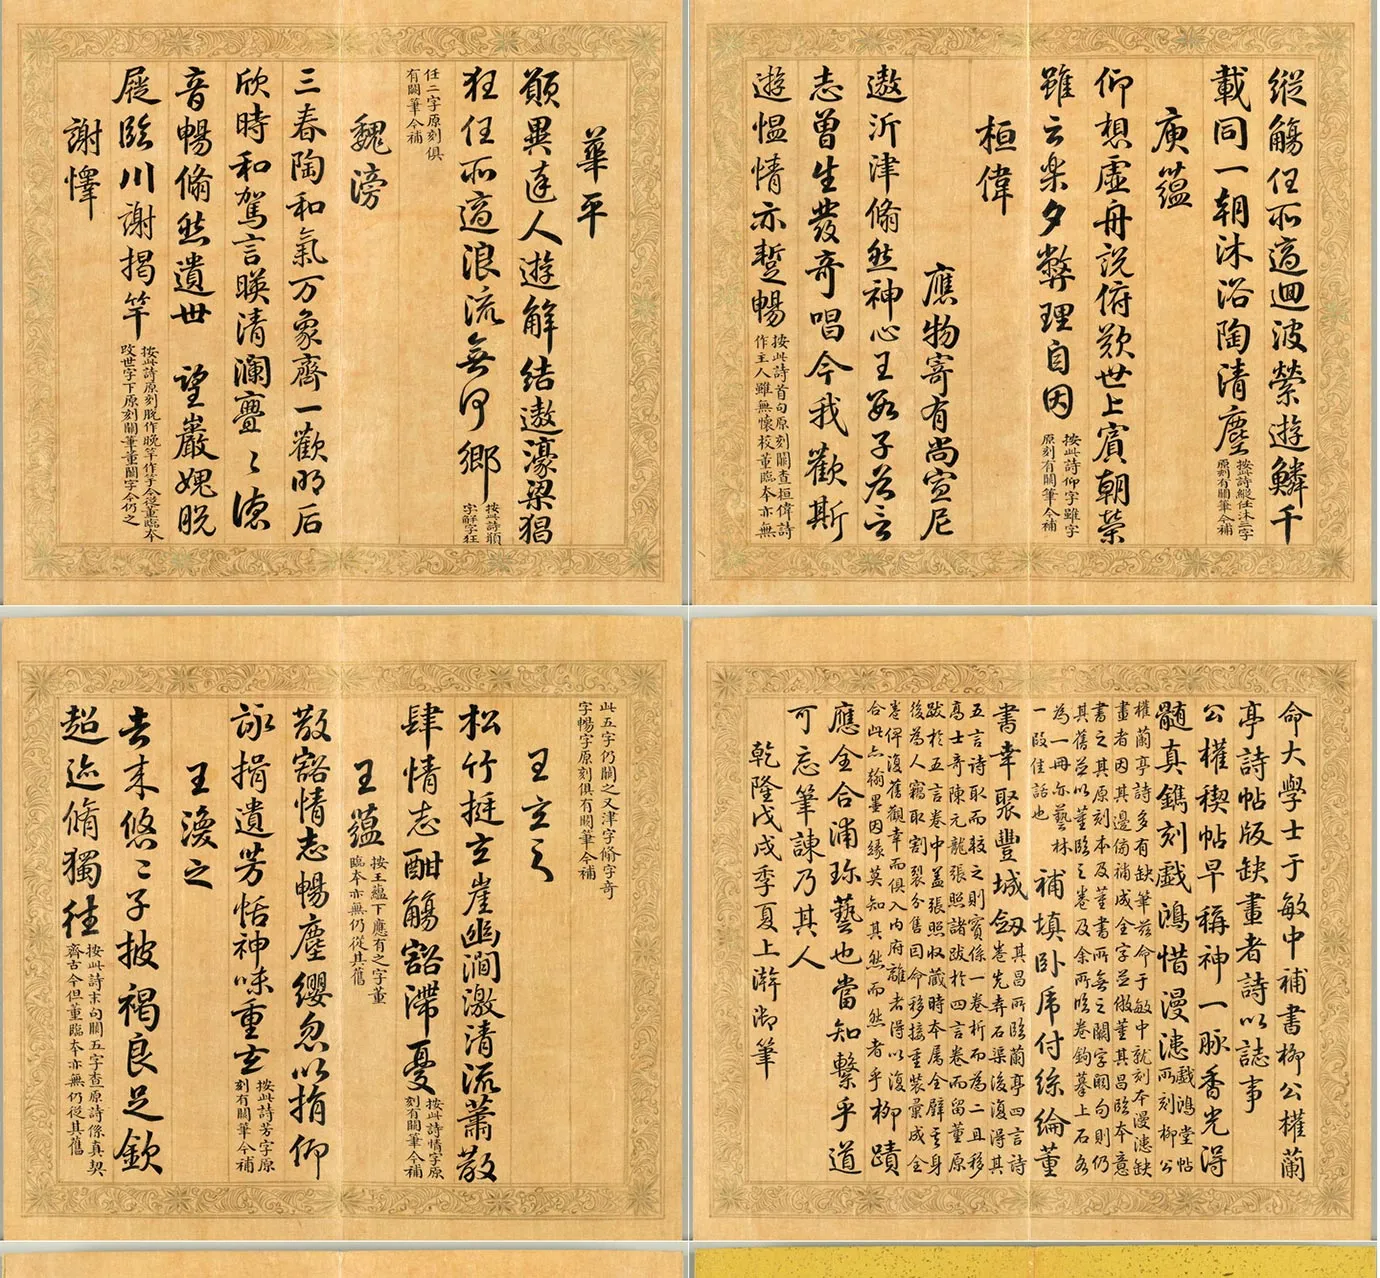 華平
願異達人遊解結遨濠梁狷
狂任所適浪流無何鄉
按此詩願
字解字狂
任二字原刻俱
有闕筆今補
魏滂
三春陶和氣万象齊一歡明后
欣時和駕言暎清瀾亹〻德
音暢脩然遺世 望巖愧脫
屣臨川謝揭竿
按此詩原刻脫作晚竿作竽今從董臨本
改世字下原刻闕筆董闕字今仍之
謝懌
縱觴任所適迴波縈遊鱗千
載同一朝沐浴陶清塵
按此詩縱任沐三字
原刻有闕筆今補
庾蘊
仰想虛舟說俯歎世上賓朝榮
雖云樂夕弊理自因
按此詩仰字雖字
原刻有闕筆今補
桓偉
應物寄有尚宣尼
遨沂津脩然神心王數子各言
志曾生發奇唱今我歡斯
遊慍情亦蹔暢
按此詩首句原刻闕查桓偉詩
作主人雖無懷校董臨本亦無
此五字仍闕之又津字脩字奇
字暢字原刻俱有闕筆今補
王玄之
松竹挺玄崖幽澗激清流蕭散
肆情志酣觴豁滯憂
按此詩情字原
刻有闕筆今補
王蘊
按王蘊下應有之字董
臨本亦無仍從其舊
散豁情志暢塵纓忽以捐仰
詠揖遺芳恬神味重玄
按此詩芳字原
刻有闕筆今補
王渙之
去來悠〻子披褐良足欽
超迹脩獨往
按此詩末句闕五字查原詩係真契
齊古今但董臨本亦無仍從其舊
命大學士于敏中補書柳公權蘭
亭詩帖版缺畫者詩以誌事
公權稧帖早稱神一脉香光得
髓真鐫刻戲鴻惜漫漶
戲鴻堂帖
所刻柳公
權蘭亭詩多有缺筆茲命于敏中就刻本漫漶缺
畫者因其邊傍補成全字並倣董其昌臨本意
書之其原刻本及董書所無之闕字闕句則仍
其舊並以董臨之卷及余所臨卷鉤摹上石各
為一冊亦藝林
一段佳話也
補填卧虎付絲綸董
書幸聚豐城劍
其昌所臨蘭亭四言詩
卷先弆石渠後復得其
五言詩取而較之則實係一卷析而為二且移
高士奇陳元龍張照諸跋於四言卷而留董原
跋於五言卷中蓋張照收藏時本屬全璧其身
後為人竊取割裂分售因命移接重裝彙成全
卷俾復舊觀幸而俱入內府離者得以復
合此亦翰墨因緣莫知其然而然者乎
柳蹟
應全合浦珎藝也當知繫乎道
可忘筆諫乃其人
乾隆戊戌季夏上澣御筆